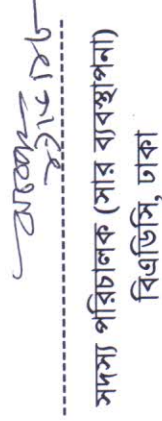 সদস্য পরিচালক (সার ব্যবস্থাপনা)
বিএডিসি, ঢাকা